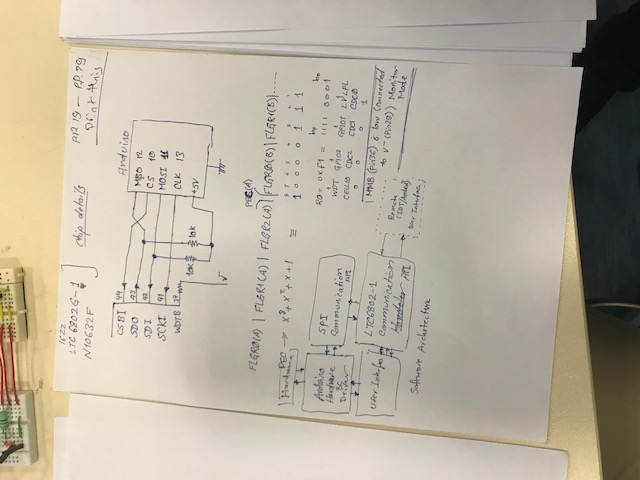 1622
LTC6802G-1
N10632F
chip details
APR 19 - PP. 79
Print this
Arduino
CSBI 44
SDO 43
SDI 42
SCKI 41
WDTB
MISO 12
CS 10
MOSI 11
CLK 13
+5V
10K
10K
V-
PEC(A)
FLGR0(A) | FLGR1(A) | FLGR2(A) | FLGR0(B) | FLGR1(B) | .....
Hardware
PEC → x⁸ + x² + x + 1 ≡
7 6 5 4 3 2 1 0
1 0 0 0 0 1 1 1
b7 b0
R0 = 0XF1 = 1111 0001
WDT GPIO2 GPIO1 LVLPL
CELL10 CDC2 CDC1 CDC0
0 0 0 1
MMB (Pin36) is low (connected
to V- (Pin28)) Monitor
Mode
Arduino
Hardware
&
Driver
SPI
Communication
API
User Interface
LTC6802-1
Communication
API
Remote
User Interface
Software Architecture